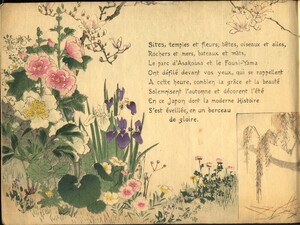 Sites, temples et fleurs; bêtes, oiseaux et ailes,
Rochers et mers, bateaux et mâts,
Le parc d'Asakousa et le Fousi-Yama
Ont défilé devant vos yeux, qui se rappellent
À cette heure, combien la grâce et la beauté
Solemnisent l'automne et décorent l'été
En ce Japon dont la moderne Histoire
S'est éveillée, en un berceau
de gloire.